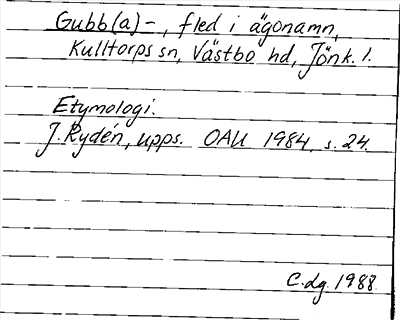 Gubb(a)-, fled i ägonamn,
Kulltorps sn, Västbo hd, Jönk. l.
Etymologi.
J. Rydén, upps. OAU 1984, s. 24.
C.dg. 1988